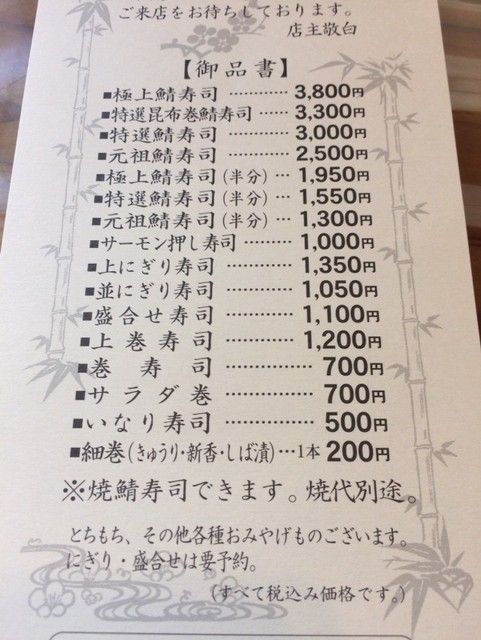 ご来店をお待ちしております。
店主敬白
【御品書】
■極上鯖寿司 ………… 3,800円
■特選昆布巻鯖寿司 …… 3,300円
■特選鯖寿司 ………… 3,000円
■元祖鯖寿司 ………… 2,500円
■極上鯖寿司(半分) … 1,950円
■特選鯖寿司(半分) … 1,550円
■元祖鯖寿司(半分) … 1,300円
■サーモン押し寿司 ……… 1,000円
■上にぎり寿司 ………… 1,350円
■並にぎり寿司 ………… 1,050円
■盛合せ寿司 ………… 1,100円
■上巻寿司 ………… 1,200円
■巻寿司 …………… 700円
■サラダ巻 …………… 700円
■いなり寿司 …………… 500円
■細巻(きゅうり・新香・しば漬)…1本 200円
※焼鯖寿司できます。焼代別途。
とちもち、その他各種おみやげものございます。
にぎり・盛合せは要予約。
(すべて税込み価格です。)